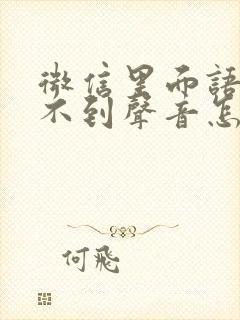 微信里面語
不到聲音怎
何飛